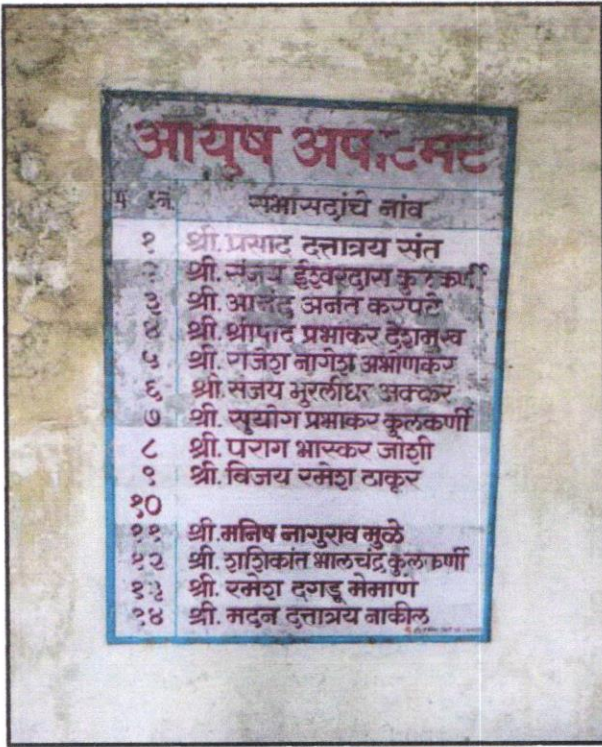 आयुष अपार्टमेंट
सभासदांचे नांव
१ श्री. प्रसाद दत्तात्रय संत
२ श्री. संजय ईश्वरदास कुलकर्णी
३ श्री. आनंद अनंत करपटे
४ श्री. श्रीपाद प्रभाकर देशमुख
५ श्री. राजेश नागेश अभोणकर
६ श्री संजय मुरलीधर अक्कर
७ श्री. सुयोग प्रभाकर कूलकर्णी
८ श्री. पराग भास्कर जोशी
९ श्री. विजय रमेश ठाकूर
१०
११ श्री. मनिष नागुराव मुळे
१२ श्री. शशिकांत भालचंद्र कुलकर्णी
१३ श्री. रमेश दगडू मेमाणे
१४ श्री. मदन दत्तात्रय नाकील